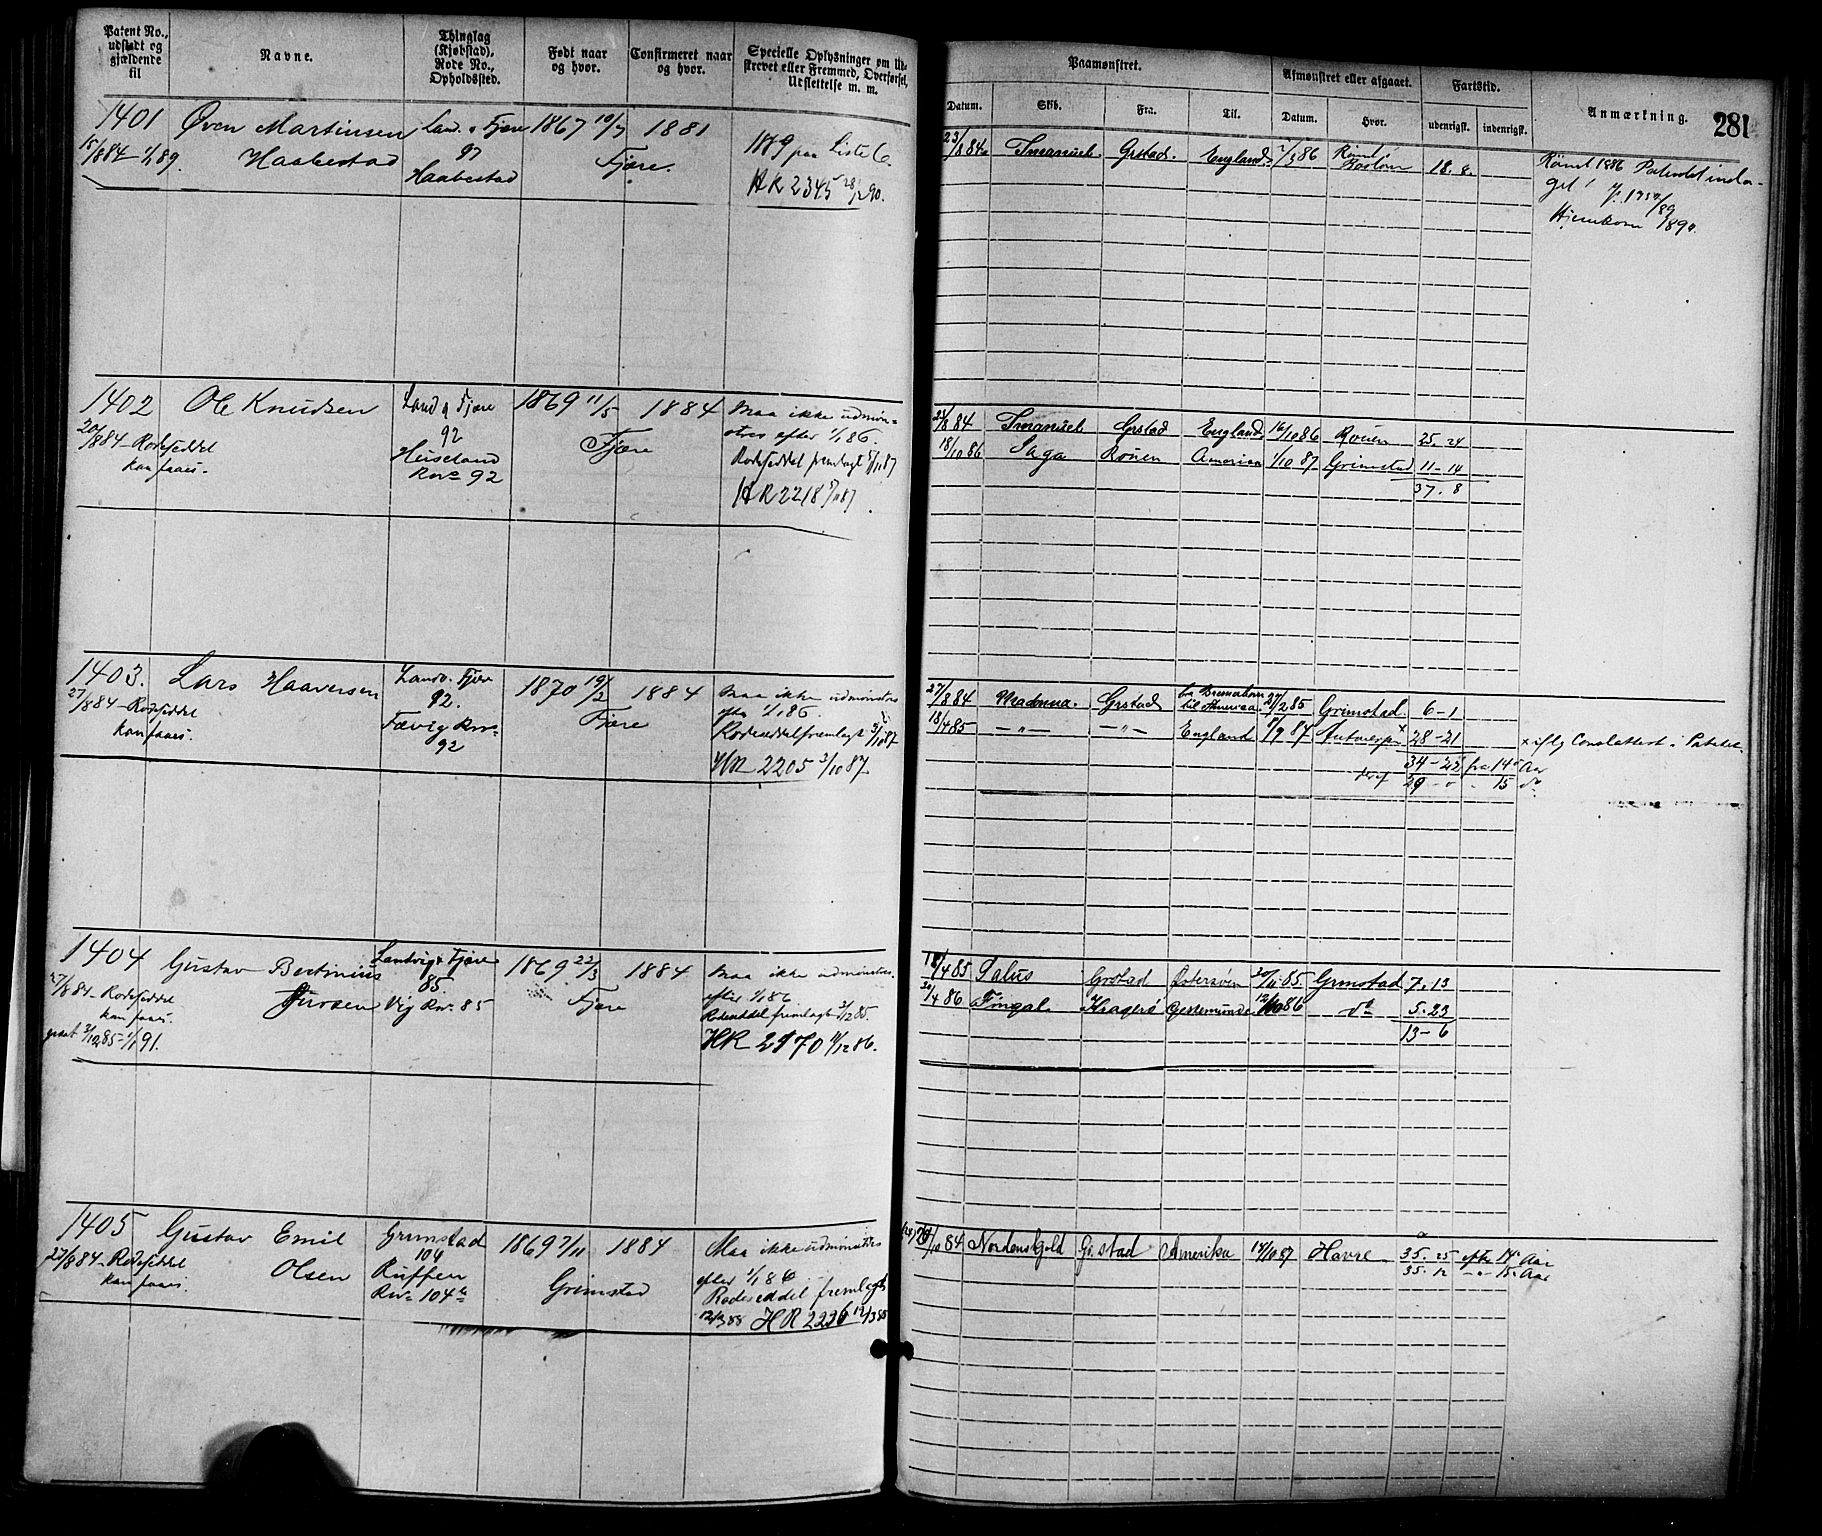 Patent No., udstedt og gjældende til
Navne.
Thinglag (Kjøbstad), Rode No., Opholdssted.
Født naar og hvor.
Confirmeret naar og hvor.
Specielle Oplysninger om Udskrevet eller Fremmed, Overførsel, Udslettelse m. m.
Paamønstret.
Datum.
Skib.
Fra.
Til.
Afmønstret eller afgaaet.
Datum.
Hvor.
Fartstid.
udenrigsk.
indenrigsk.
Anmærkning.
281
1401
15/8 84 - 1/1 89.
Øven Martinsen
Haabestad
Land. Fjære
97
Haabestad
1867 19/7
1881
Fjære.
1889 paa Liste C.
HR 2345 28/2 90.
23/8 84
Imanuel.
Grstad.
England
7/3 86
Rømt Boston
18. 8.
Rømt 1886 Patentet inda-
get
Hjemkom 1890.
1402
20/8 84 Rodeseddel
kan faaes.
Ole Knudsen
Land og Fjære
92
Huseland
Rno 92
1869 11/5
1884
Fjære
Maa ikke udmøn-
stres efter 1/1 86.
Rodeseddel fremlagt 8/11 87
HR 2218 7/11 87.
23/8 84 Imanuel Grstad England 16/10 86 Rouen 25. 24
18/10 86 Saga Rouen Amerika 1/10 87 Grimstad 11-14
37. 8
1403.
27/8 84 - Rodeseddel
kan faaes.
Lars Haaversen
Landv. Fjære
92.
Fævig Rno
92
1870 19/2
1884
Fjære
Maa ikke udmønstres
efter 1/1 86.
Rodeseddel fremlagt 3/10 87
HR 2205 3/10 87.
27/8 84 Madonna. Grstad fra Bremerhaven til Amerika 27/2 85 Grimstad 6-1
18/4 85 -"- -"- England 8/9 87 Antwerpen x 28-21
x iflg Conslattest i Patentet
34-22 fra 14 Aar
29-0 " 15 do
1404
27/8 84 - Rodeseddel
kan faaes.
1/1 91.
Gustav Bertinius
Jursen
Landvig & Fjære
85
Vig Rno. 85
1869 22/3
1884
Fjære
Maa ikke udmønstres
efter 1/1 86
Rodeseddel fremlagt 31/12 85.
HR 2170 11/12 86.
18/4 85 Salus Grstad Østersøen 20/11 85. Grimstad 7. 13
30/4 86 Fingal Kragerø Gestemünde 12/10 86 do 5. 23
13-6
1405
27/8 84 - Rodeseddel
kan faaes.
Gustav Emil
Olsen
Grimstad
104
Ruffen
Rno 104
1869 7/11
1884
Grimstad
Maa ikke udmønstres
efter 1/1 86
Rodeseddel fremlagt
12/3 88 HR 2226 12/3 88
84 Nordenskjold Grstad Amerika 14/10 87 Havre 35. 25 efter 14 Aar
35. 12 -"- 15 Aar